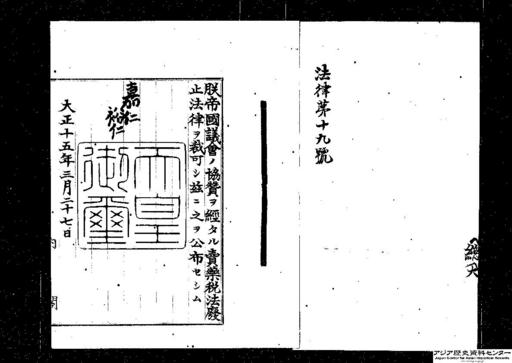 法律第十九號
朕帝國議會ノ協贊ヲ經タル賣藥税法廢
止法律ヲ裁可シ玆ニ之ヲ公布セシム
嘉仁
裕仁
天皇
御璽
大正十五年三月二十七日
内閣
アジア歴史資料センター
Japan Center for Asian Historical Records